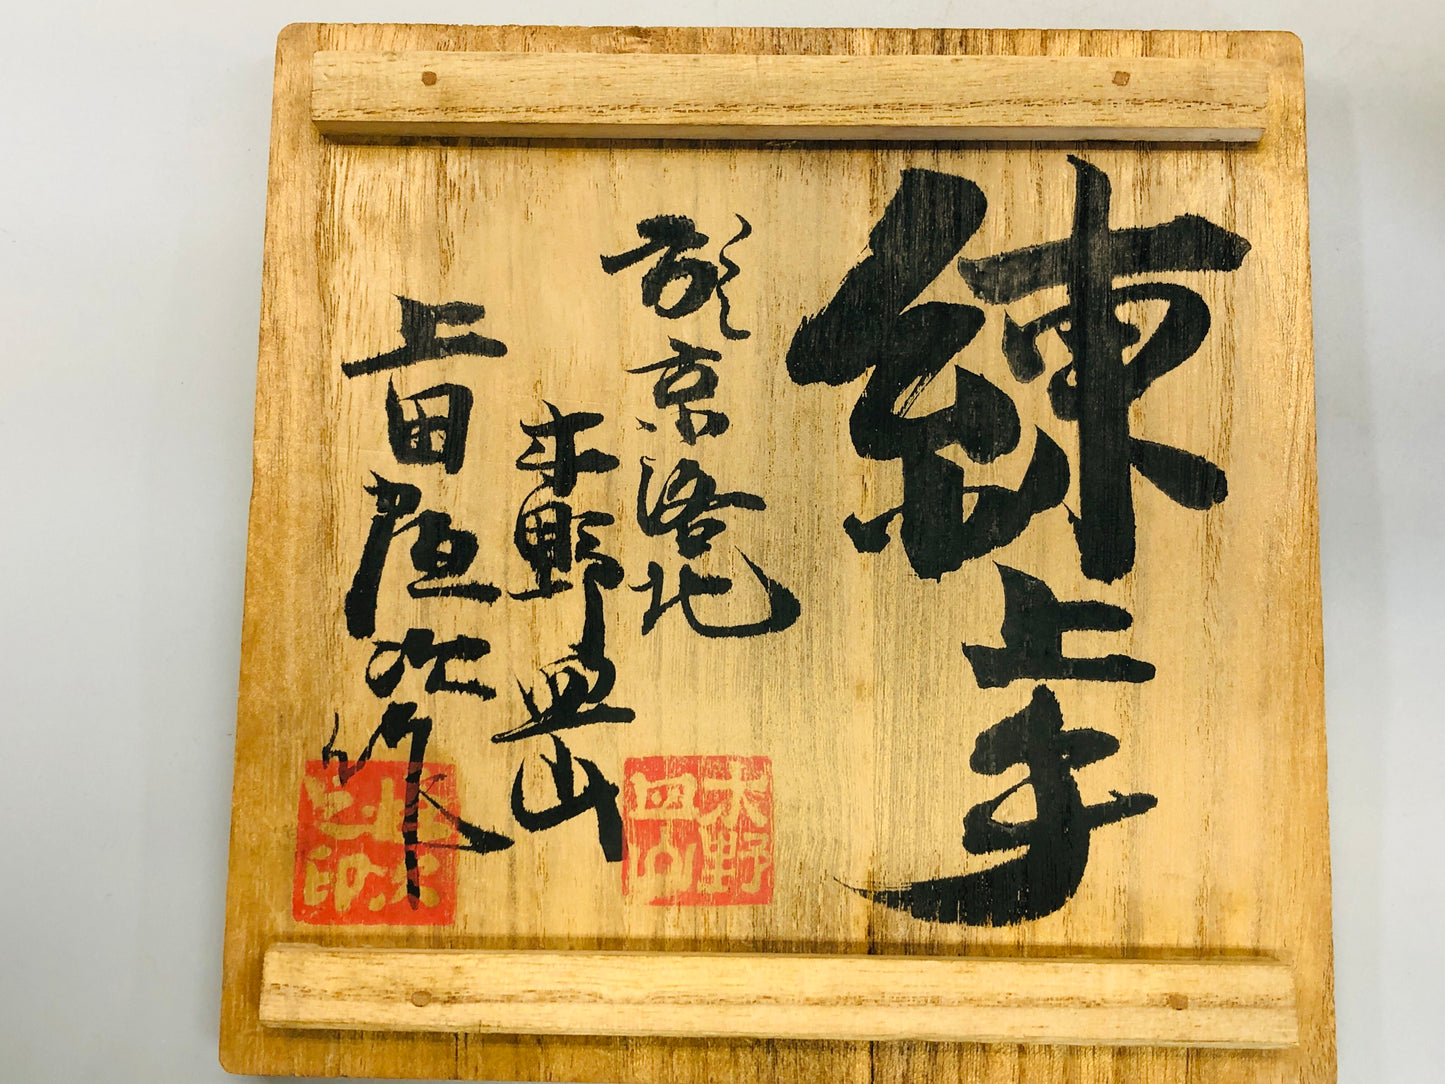 練上手
於京洛北
木野皿山
上田恒次作
木野皿山
恒次之印